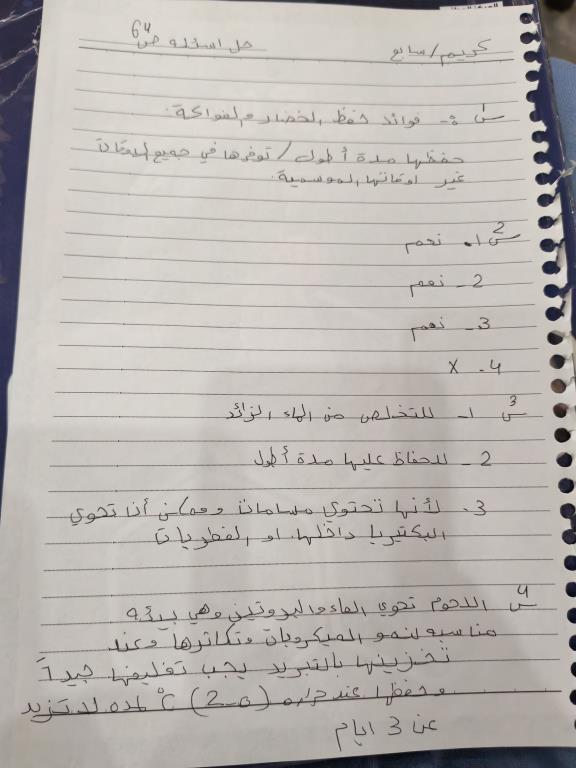 كريم/سابع
حل اسئلة ص 64
س1 :- فوائد حفظ الخضار والفواكة:
حفظها مدة أطول / توفرها في جميع الاوقات
غير اوقاتها الموسمية.
س2 1. نعم
2 - نعم
3. نعم
4. X
س3 1- للتخلص من الماء الزائد
2 - للحفاظ عليها مدة أطول
3. لأنها تحتوي مسامات وممكن أن تحوي
البكتيريا داخلها. او الفطريات
س4 اللحوم تحوي الماء والبروتين وهي بيئه
مناسبه لنمو الميكروبات وتكاثرها وعند
تخزينها بالتبريد يجب تغليفها جيداً
وحفظها عند حراره (5-2) °C لمده لا تزيد
عن 3 ايام